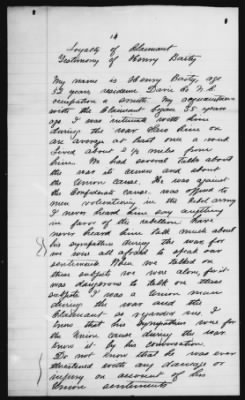 14
Loyalty of Claimant
Testimony of Henry Barty
My name is Henry Barty, age
52 years residence Davie Co N.C.
occupation a smith. My acquaintance
with the Claimant began 35 years
ago I was intimate with him
during the war Saw him on
an average at least once a week
lived about 2½ mile from
him. We had several talks about
the war its causes and about
the Union cause. He was against
the Confederate Cause. was opposed to
men volunteering in the rebel army
I never heard him say anything
in favor of the rebellion have
never heard him talk much about
his sympathies during the war for
we were all afraid to speak our
sentiments When we talked on
these subjects we were alone, for it
was dangerous to talk on these
subjects I was a Union man
during the war and the
Claimant so regarded me. I
know that his sympathies was for
the Union cause during the war.
Know it by his conversation.
Do not know that he was ever
threatened with any damage or
injury on account of his
Union sentiments